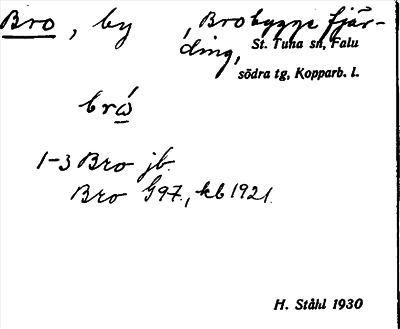 Bro, by, Brobygge fjär-
ding, St. Tuna sn, Falu
södra tg, Kopparb. l.
brώ
1-3 Bro jb.
Bro G97, kb 1921.
H. Ståhl 1930